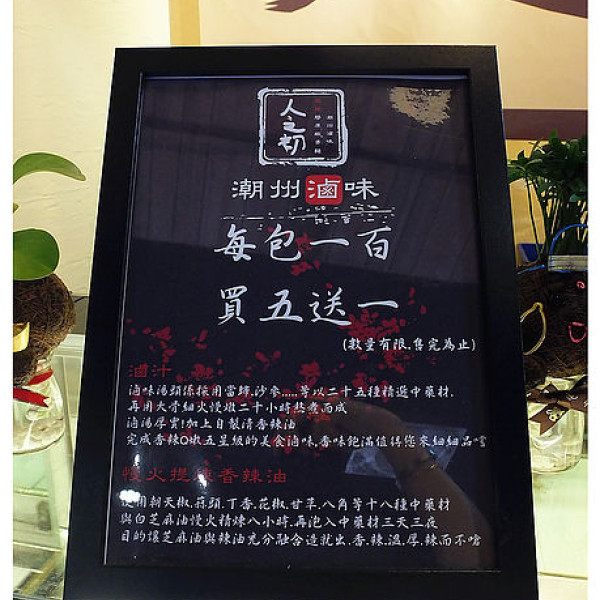 人之初
潮州滷味
每包一百
買五送一
(數量有限.售完為止)
滷汁
滷味湯頭係採用當歸.沙參.....等以二十五種精選中藥材.
再用大骨細火慢燉二十小時熬煮而成
滷湯厚實!加上自製清香辣油
完成香辣Q嫩五星級的美食滷味,香味飽滿值得您來細細品嚐
慢火提煉香辣油
使用朝天椒.蒜頭.丁香.花椒.甘草.八角等十八種中藥材
與白芝麻油慢火精煉八小時.再泡入中藥材三天三夜
目的讓芝麻油與辣油充分融合造就出.香.辣.溫.厚.辣而不嗆